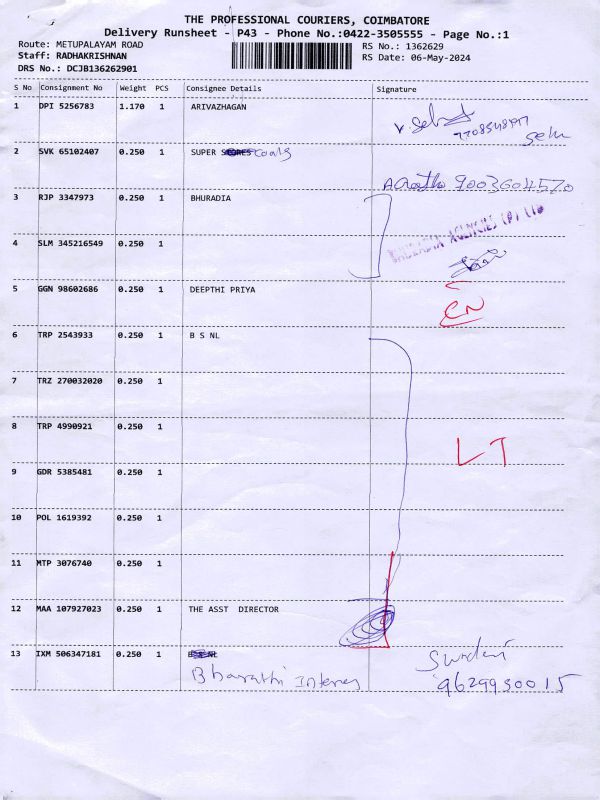 THE PROFESSIONAL COURIERS, COIMBATORE
Delivery Runsheet - P43 - Phone No.:0422-3505555 - Page No.:1
Route: METUPALAYAM ROAD RS No.: 1362629
Staff: RADHAKRISHNAN RS Date: 06-May-2024
DRS No.: DCJB136262901
S No Consignment No Weight PCS Consignee Details Signature
1 DPI 5256783 1.170 1 ARIVAZHAGAN
2 SVK 65102407 0.250 1 SUPER
9003604520
3 RJP 3347973 0.250 1 BHURADIA
BHURADIA AGENCIES (P) LTD
4 SLM 345216549 0.250 1
5 GGN 98602686 0.250 1 DEEPTHI PRIYA
6 TRP 2543933 0.250 1 B S NL
7 TRZ 270032020 0.250 1
8 TRP 4990921 0.250 1
LT
9 GDR 5385481 0.250 1
10 POL 1619392 0.250 1
11 MTP 3076740 0.250 1
12 MAA 107927023 0.250 1 THE ASST DIRECTOR
13 IXM 506347181 0.250 1
Bharathi
9629930015